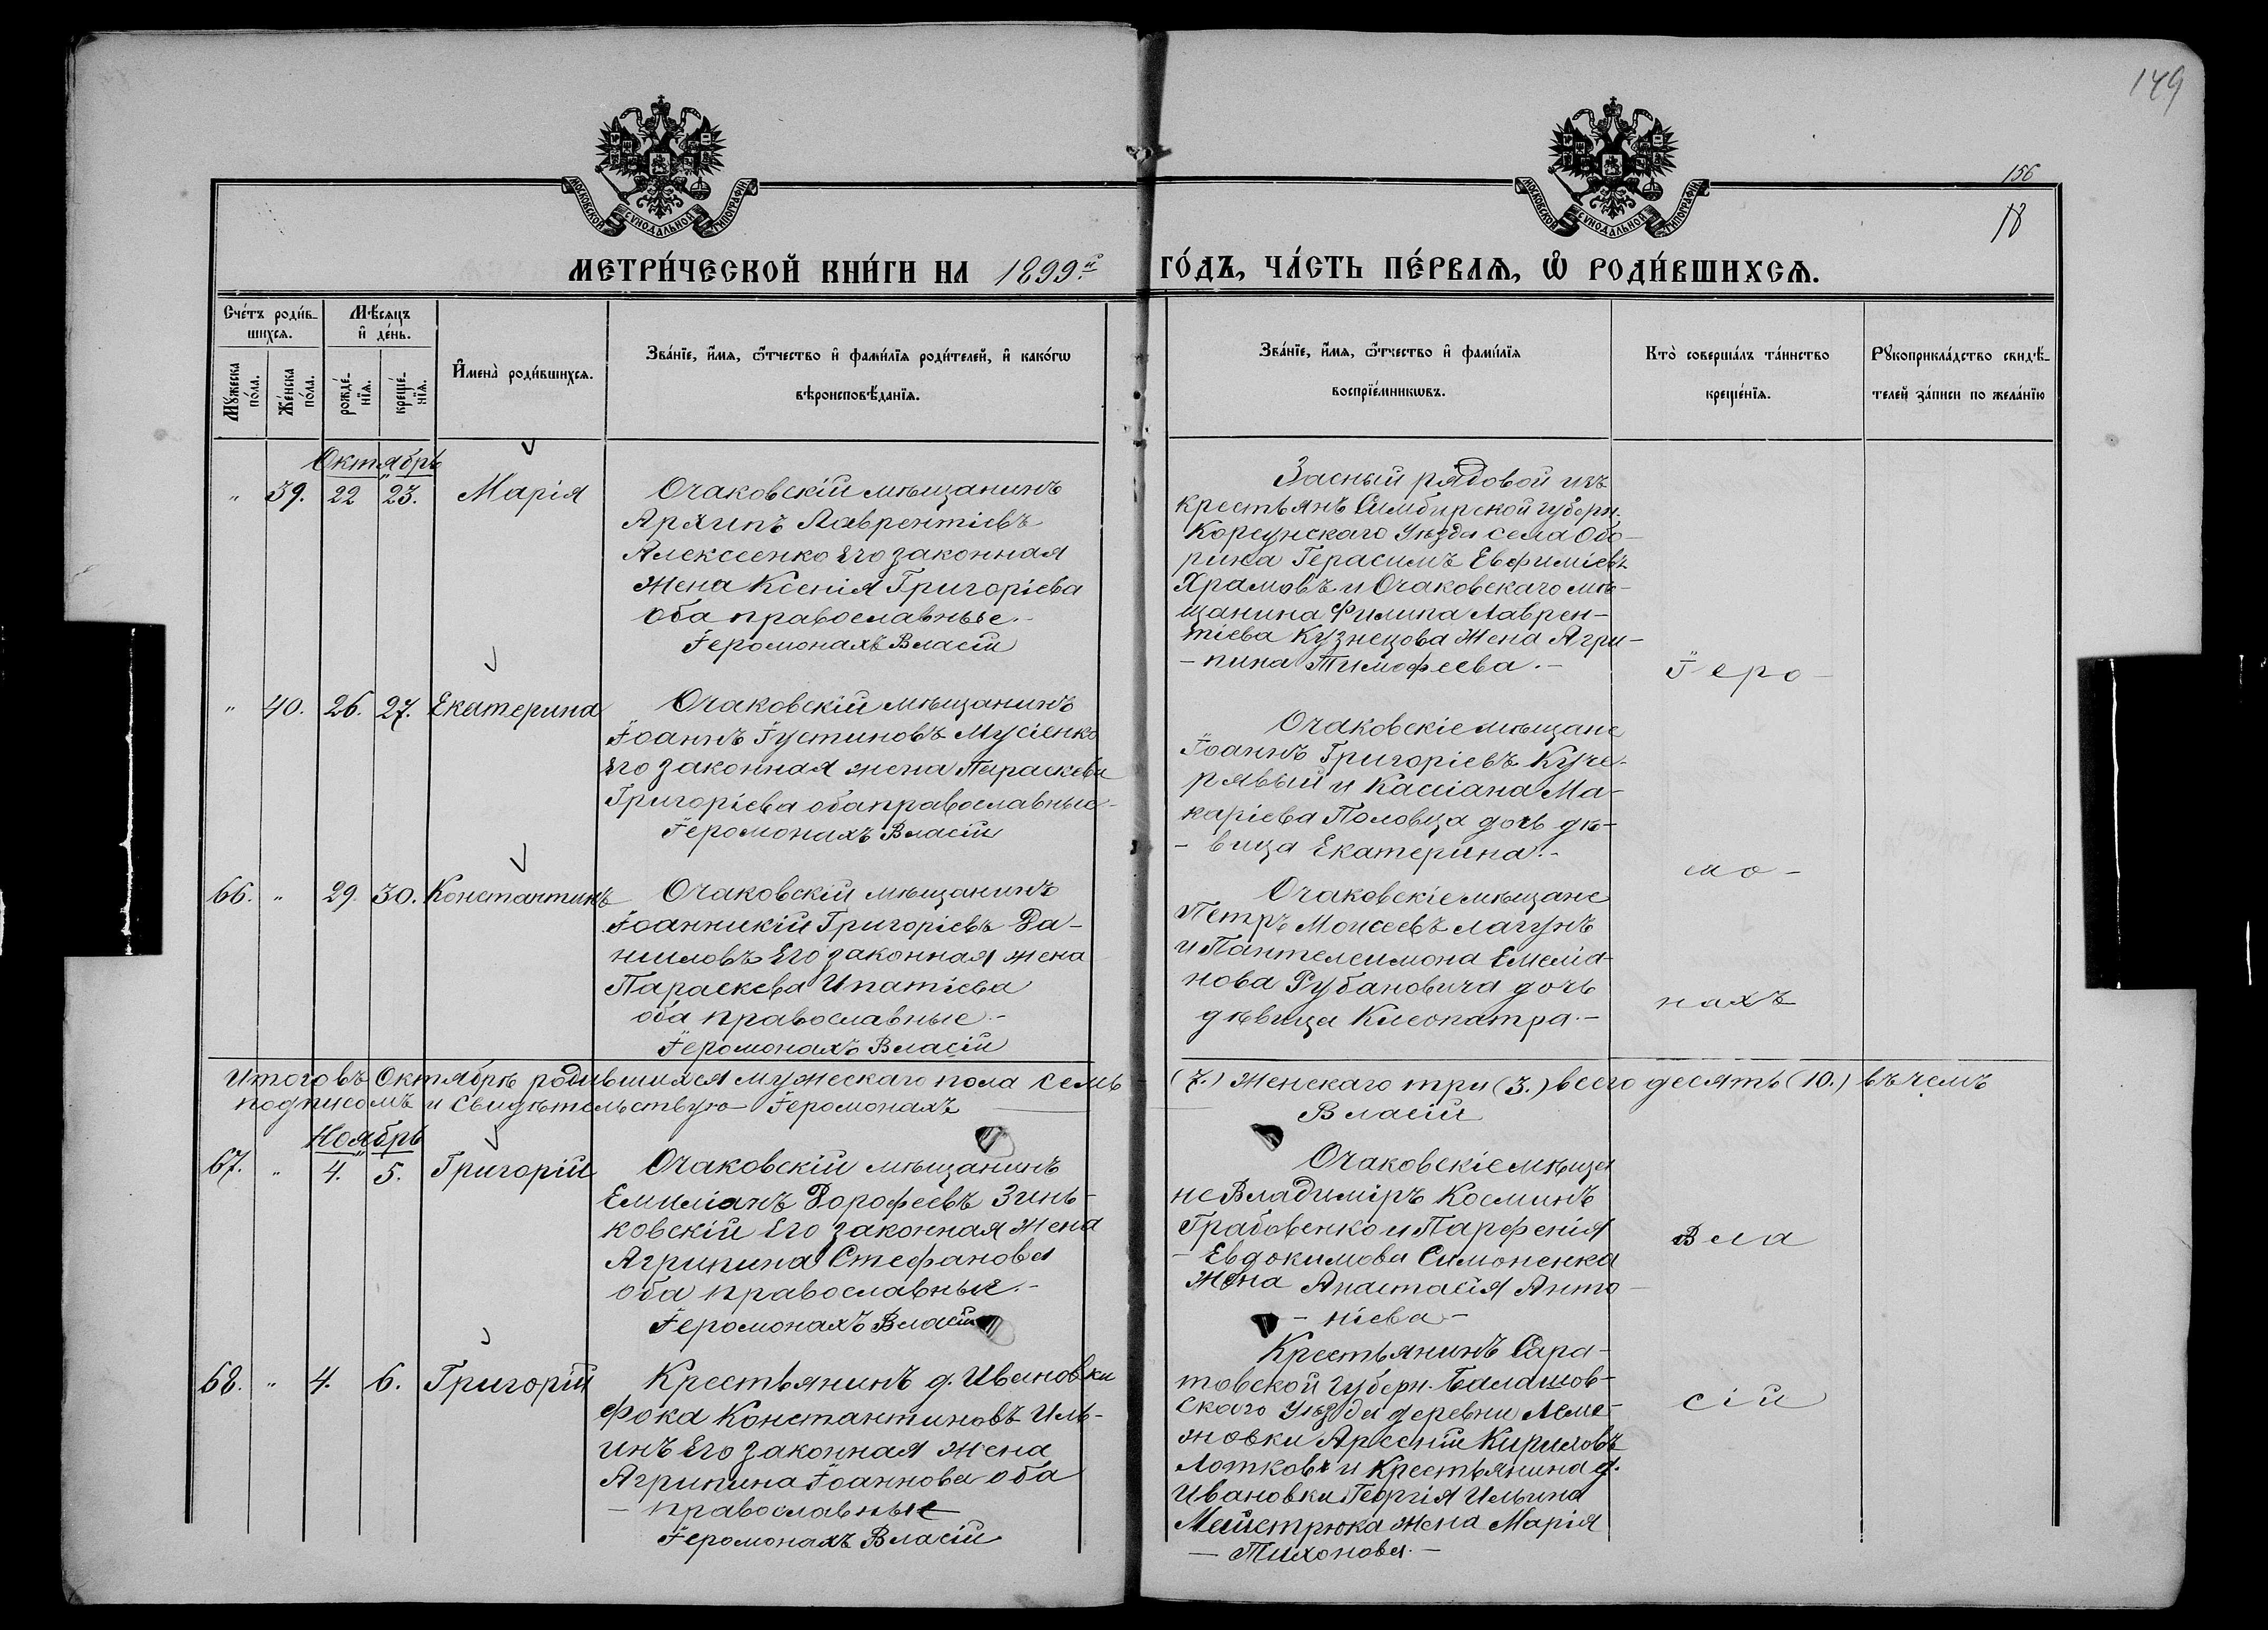 149
156
18
МОСКОВСКОЙ СѴНОДАЛЬНОЙ ТИПОГРАФІИ
МОСКОВСКОЙ СѴНОДАЛЬНОЙ ТИПОГРАФІИ
МЕТРИ́ЧЕСКОЙ КНИ́ГИ НА 1899й ГО́ДЪ, ЧА́СТЬ ПЕ́РВАѦ, Ѡ҆ РОДИ́ВШИХСѦ.
Сче́тъ роди́в-
шихсѧ.
Мѣ́сѧцъ
и҆ де́нь.
Мꙋ́жеска
по́ла.
Же́нска
по́ла.
рожде́-
нїѧ.
креще́-
нїѧ.
И҆мена̀ роди́вшихсѧ.
Зва́нїе, и҆́мѧ, ѻ҆́тчество и҆ фами́лїѧ роди́телей, и҆ како́гѡ
вѣроисповѣ́данїѧ.
Зва́нїе, и҆́мѧ, ѻ҆́тчество и҆ фами́лїѧ
воспрїе́мникѡвъ.
Кто̀ соверша́лъ та́инство
креще́нїѧ.
Рꙋкоприкла́дство свидѣ́-
телей за́писи по жела́нїю
Октябрь
" 39. 22 23. Марія
Очаковскій мѣщанинъ
Архипъ Лаврентіевъ
Алексеенко Его законная
жена Ксенія Григоріева
оба православные.-
Іеромонахъ Власій
Засный рядовой изъ
крестьянъ Симбирской губерн.
Корсунскаго Уѣзда села Обо-
рина Герасимъ Евфиміевъ
Храмовъ и Очаковскаго мѣ-
щанина Филипа Лаврен-
тіева Кузнецова жена Агри-
-пина Тимофеева.-
" 40. 26. 27. Екатерина
Очаковскій мѣщанинъ
Іоаннъ Іустиновъ Мусіенко
Его законная жена Параскева
Григоріева оба православные-
Іеромонахъ Власій
Очаковскіе мѣщане
Іоаннъ Григоріевъ Куче-
рявый и Кассіана Ма-
каріева Половца дочь дѣ-
-вица Екатерина.-
66. " 29. 30. Константинъ
Очаковскій мѣщанинъ
Іоанникій Григоріевъ Да-
ниловъ Его законная жена
Параскева Ипатіева
оба православные.-
Іеромонахъ Власій
Очаковскіе мѣщане
Петръ Моисеевъ Лагунъ
и Пантелеимона Емелiа-
нова Рубановича дочь
дѣвица Клеопатра.-
Итого въ Октябрѣ родившихся мужескаго пола семь (7.) женскаго три (3.) всего десять (10.) въ чемъ
подписомъ и Свидѣтельствую Іеромонахъ Власій
Ноябрь
67. " 4. 5. Григорій
Очаковскій мѣщанинъ
Емиліанъ Дорофеевъ Зинь-
ковскій Его законная жена
Агрипина Стефанова
оба православные.-
Іеромонахъ Власій
Очаковскіе мѣща
не Владиміръ Косминъ
Грабовенко и Парфенія
-Евдокимова Симоненка
жена Анастасія Анто-
-ніева-
68. " 4. 6. Григорій
Крестьянинъ д. Ивановки
Фока Константиновъ Иль-
инъ Его законная жена
Агрипина Іоаннова оба
-православные
Іеромонахъ Власій
Крестьянинъ Сара-
товской губерн. Балашов-
скаго Уѣзда деревни
Арсеній Кириловъ
Лотковъ и Крестьянина д.
Ивановки Георгія Ильина
Мейстрюка жена Марія
-Тихонова.-
Іеро-
мо-
нахъ
Вла
сій